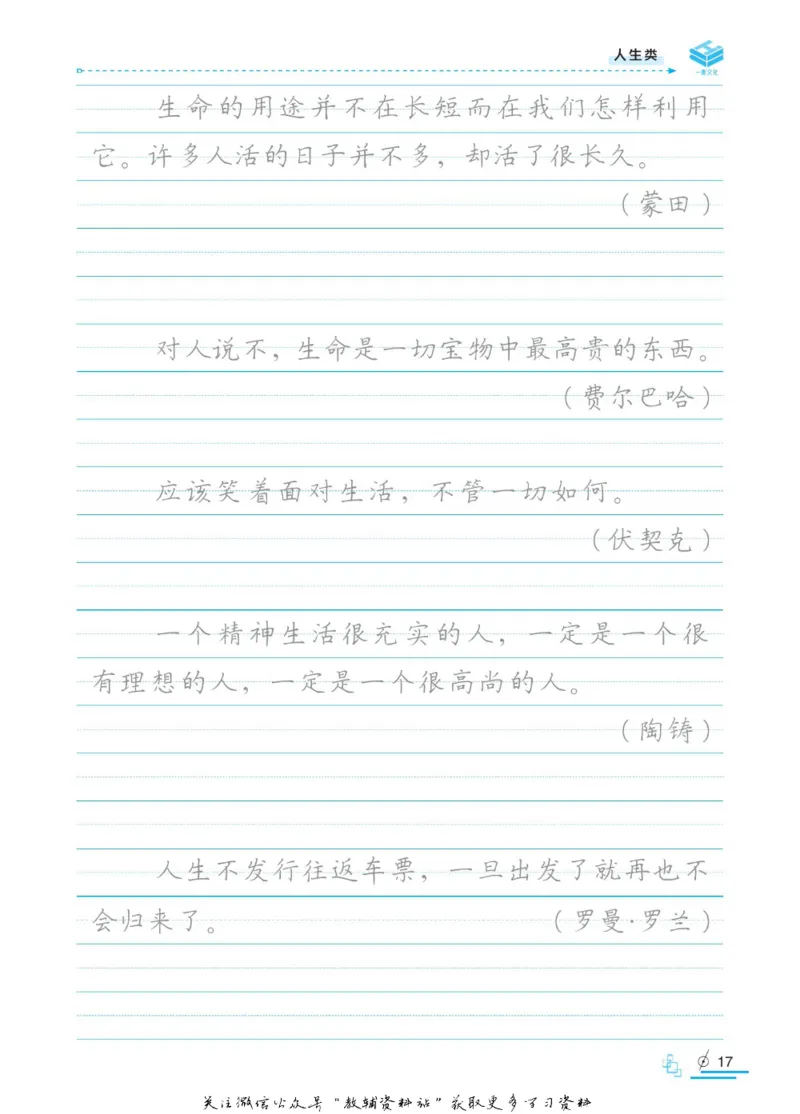 人生类
一本文化
生命的用途并不在长短而在我们怎样利用
它。许多人活的日子并不多，却活了很长久。
（蒙田）
对人说不，生命是一切宝物中最高贵的东西。
（费尔巴哈）
应该笑着面对生活，不管一切如何。
（伏契克）
一个精神生活很充实的人，一定是一个很
有理想的人，一定是一个很高尚的人。
（陶铸）
人生不发行往返车票，一旦出发了就再也不
会归来了。（罗曼·罗兰）
17
关注微信公众号“教辅资料站”获取更多学习资料